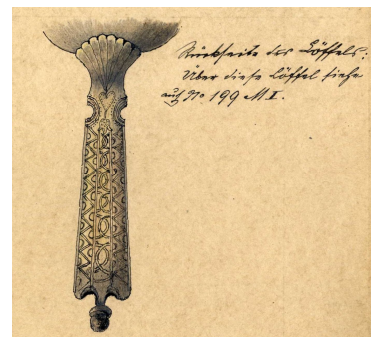 Rückseite des Löffels:
Über diese Löffel siehe
auch No 199 M I.